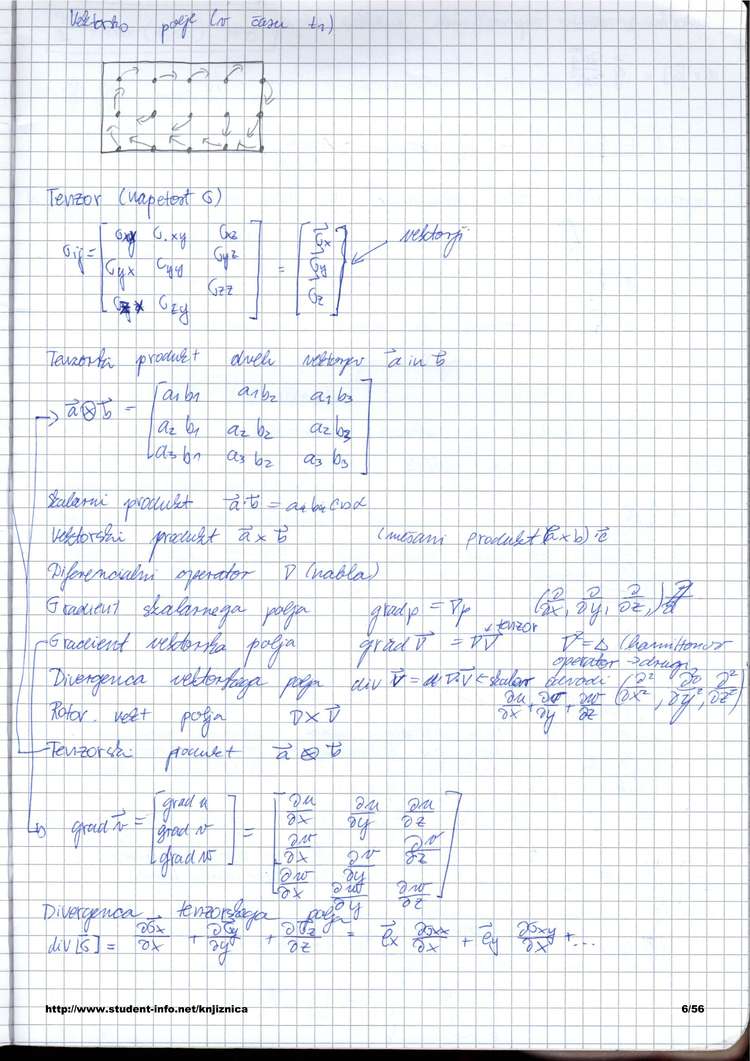 Vektorsko polje (v času t1)
Tenzor (napetost σ)
σij = [σxx σxy σxz
σyx σyy σyz
σzx σzy σzz] = [σ⃗x
σ⃗y
σ⃗z] vektorji
Tenzorski produkt dveh vektorjev a⃗ in b⃗
a⃗⊗b⃗ = [a1b1 a1b2 a1b3
a2b1 a2b2 a2b3
a3b1 a3b2 a3b3]
Skalarni produkt a⃗·b⃗ =
Vektorski produkt a⃗×b⃗ (mešani produkt (a×b)·c⃗
Diferencialni operator ∇ (nabla)
Gradient skalarnega polja grad p = ∇p (∂/∂x, ∂/∂y, ∂/∂z,)
Gradient vektorska polja grad v⃗ = ∇v⃗ tenzor ∇² = Δ (hamiltonov
operator → drugi
Divergenca vektorskega polja div v⃗ = ∇·v⃗ ← skalar (∂²/∂x², ∂²/∂y², ∂²/∂z²)
∂u/∂x + ∂v/∂y + ∂w/∂z
Rotor. vekt polja ∇×v⃗
Tenzorski produkt a⃗⊗b⃗
grad v⃗ = [grad u
grad v
grad w] = [∂u/∂x ∂u/∂y ∂u/∂z
∂v/∂x ∂v/∂y ∂v/∂z
∂w/∂x ∂w/∂y ∂w/∂z]
Divergenca tenzorskega polja
div[σ] = ∂σ⃗x/∂x + ∂σ⃗y/∂y + ∂σ⃗z/∂z = e⃗x ∂σxx/∂x + e⃗y ∂σxy/∂x + ...
http://www.student-info.net/knjiznica 6/56